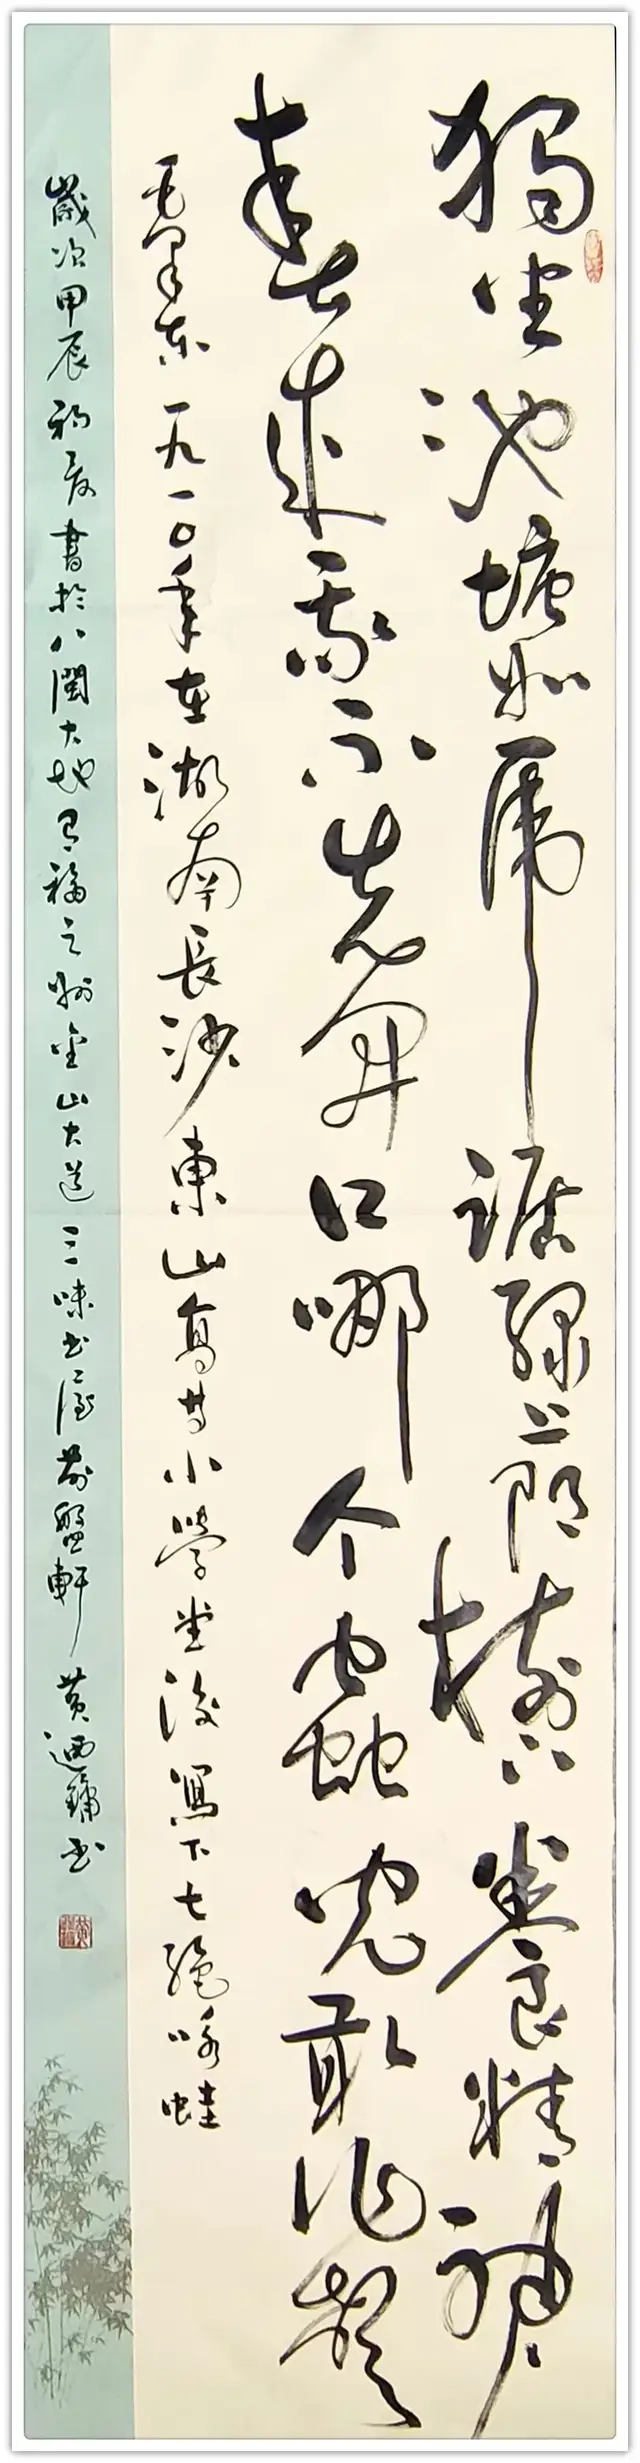 獨坐池塘如虎踞綠蔭樹下養精神
春來我不先開口哪个蟲兒敢作聲
毛澤東一九一〇年在湖南長沙東山高等小學堂後寫下七絕咏蛙
歲次甲辰初夏書於八閩大地有福之州金山大道三味書屋盤軒黄迺鏞書